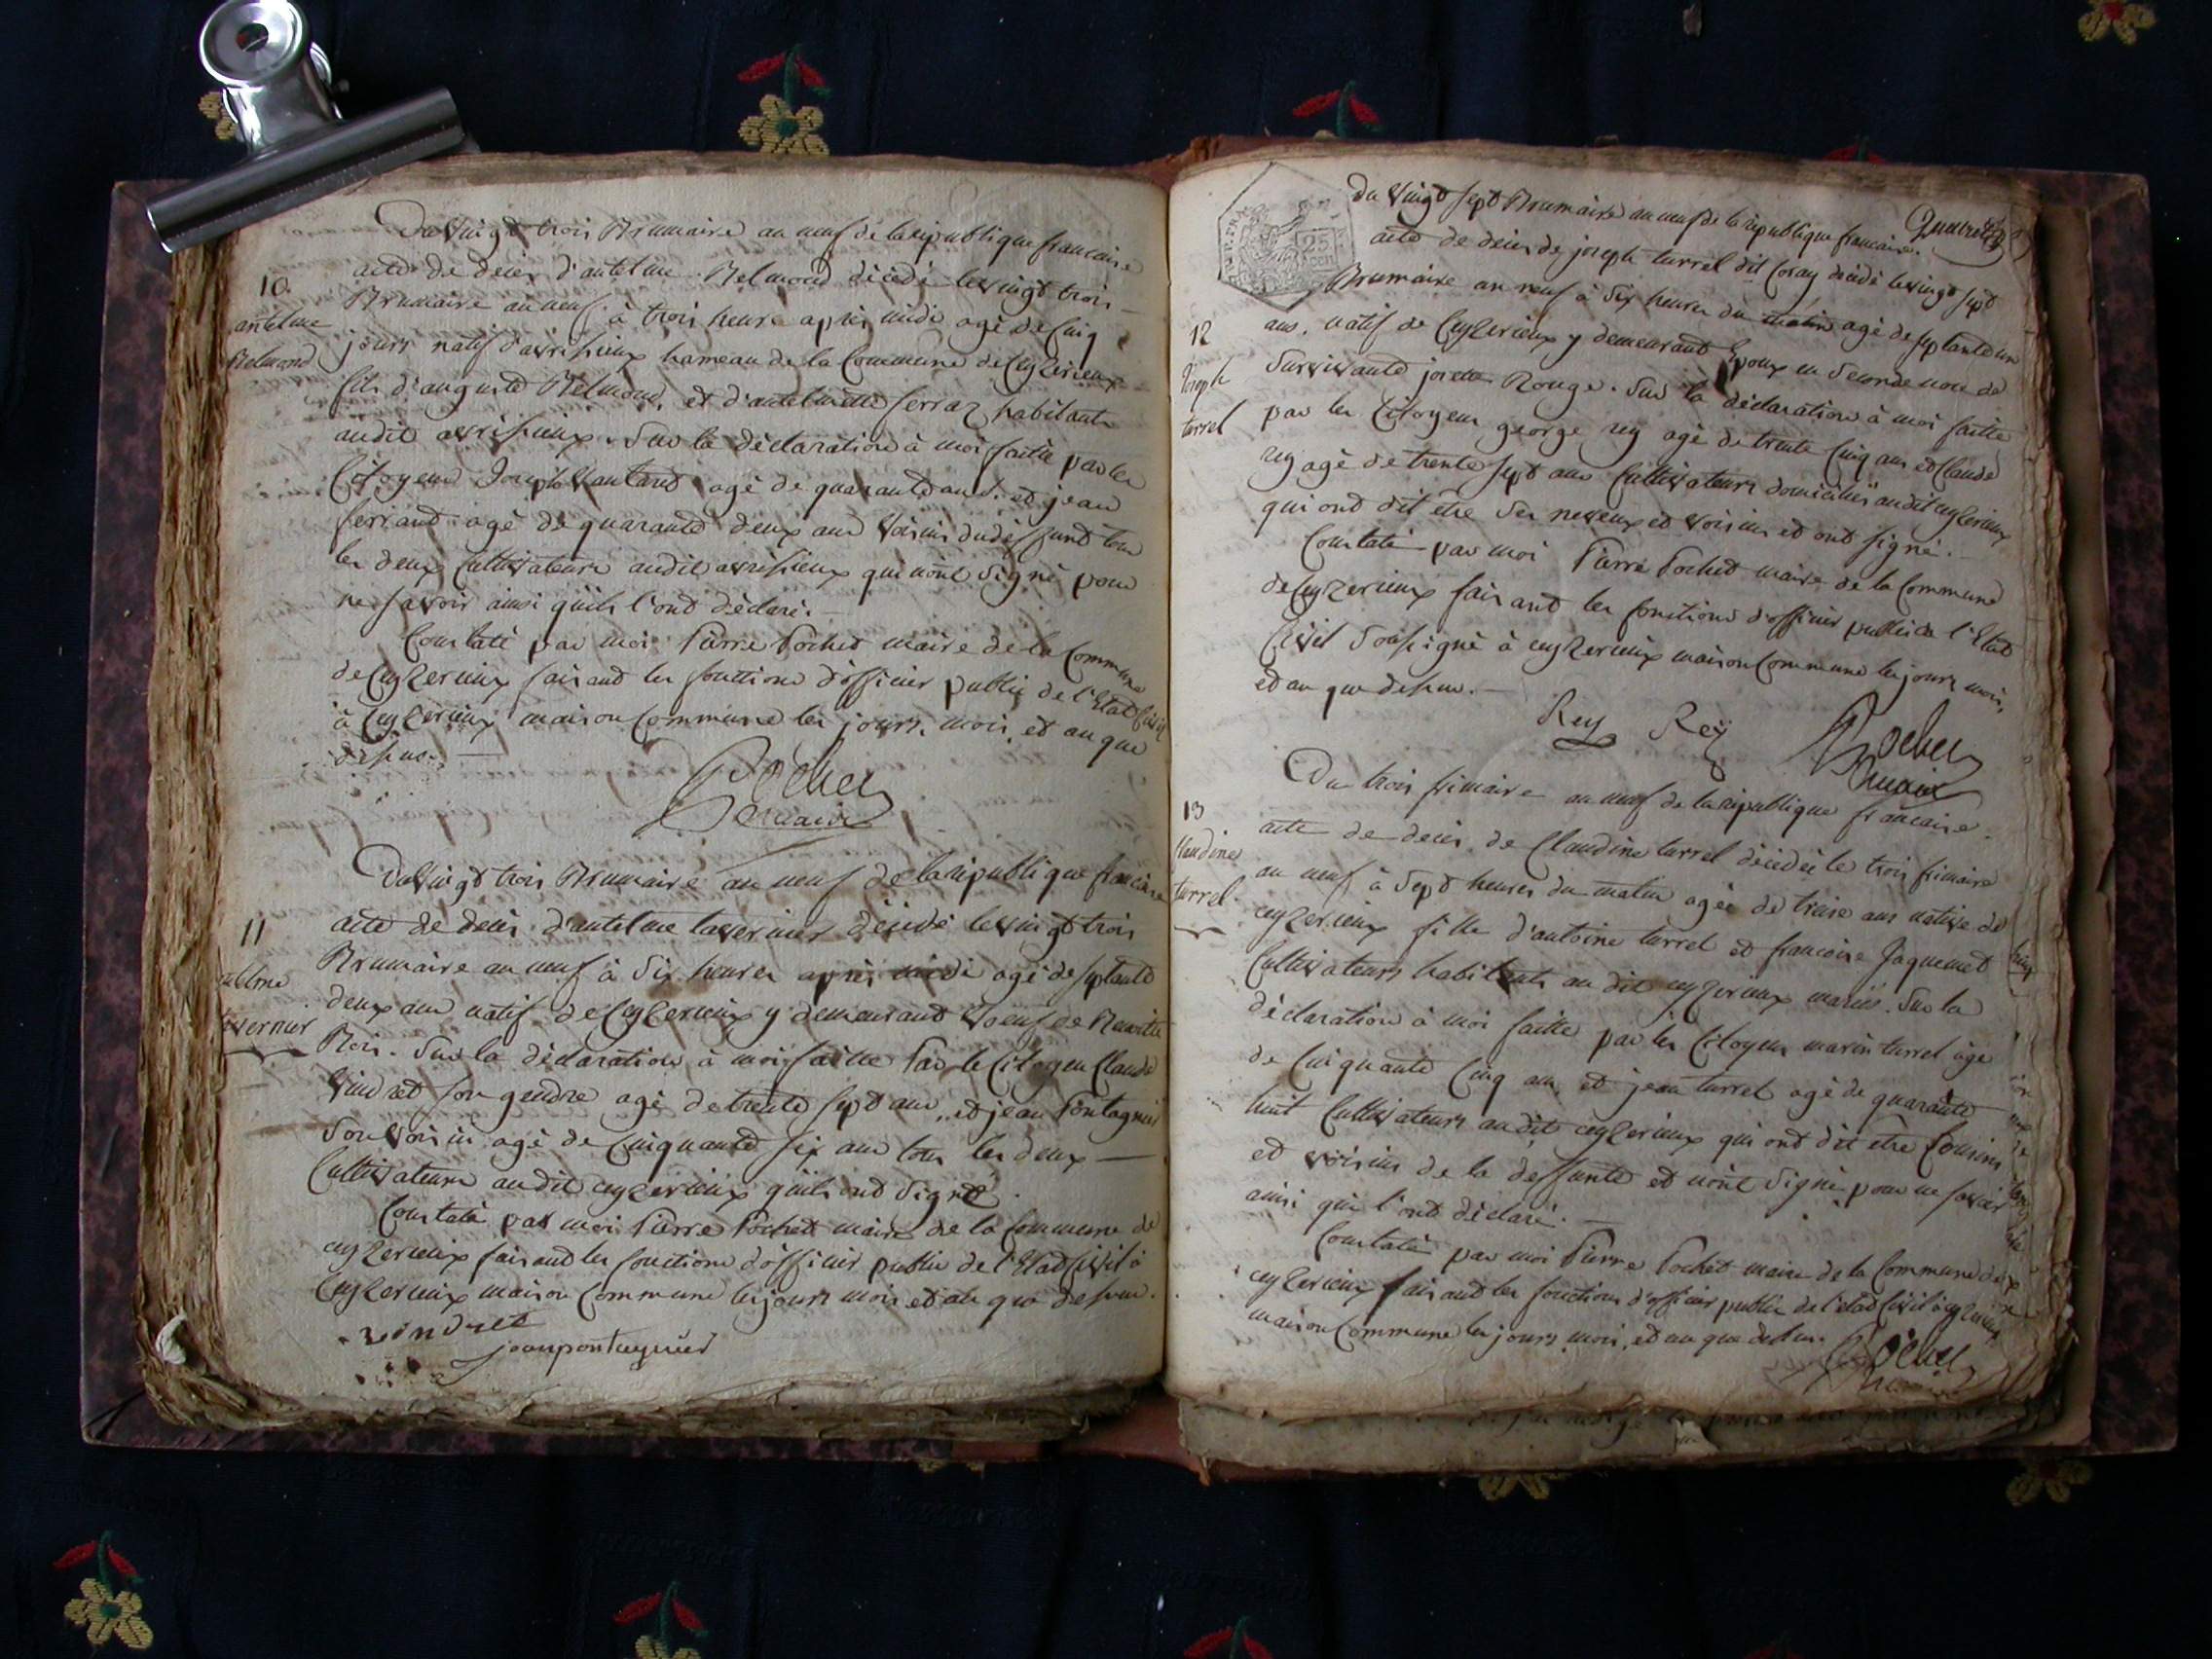 Du vingt trois Brumaire an neuf de la republique francaise
10
antelme
Belmond
acte de deces d'antelme Belmond décédé le vingt trois
Brumaire an neuf à trois heure apres midi agé de cinq
jours natif d'avrisieux hameau de la Commune de Ceyzerieux
fils d'auguste Belmond, et d'antelmette ferraz habitants
audit avrisieux. Sur la déclaration à moi faitte par les
Citoyens Joseph agé de quarante ans. et jean
ferrand agé de quarante deux ans voisins du deffunt tous
les deux Cultivateurs audit avrisieux qui n'ont signé pour
ne savoir ainsi qu'ils l'ont déclaré. —
Constaté par moi Pierre Pochet maire de la Commune
de Ceyzerieux faisant les fonctions d'officier public de l'Etat Civil
à Ceyzerieux maison Commune les jours, mois, et an que
dessus. —
Pochet
maire
Du vingt trois Brumaire an neuf de la republique francaise
11
antelme
tavernier
acte de deces d'antelme tavernier décédé le vingt trois
Brumaire an neuf à six heures apres midi agé de septante
deux ans natif de Ceyzerieux y demeurant voeuf de
Sur la déclaration à moi faitte Par le Citoyen Claude
vindret son gendre agé de trente sept ans, et jean Pontagnier
Son voisin agé de Cinquante six ans tous les deux —
Cultivateurs audit ceyzerieux qu'ils ont signé.
Constaté par moi Pierre Pochet maire de la Commune de
ceyzerieux faisant les fonctions d'officier public de l'Etat Civil à
Ceyzerieux maison Commune les jours mois et an que dessus.
vindret
jean pontagnier
25
cen
Du vingt sept Brumaire an neuf de la republique francaise.
12
Joseph
turrel
acte de deces de joseph turrel dit Coray décédé le vingt sept
Brumaire an neuf à six heures du matin agé de septante un
ans. natif de Ceyzerieux y demeurant Epoux en seconde noce de
Survivante Rouge. Sur la déclaration à moi faitte
par les Citoyens george rey agé de trente cinq ans et Claude
rey agé de trente sept ans Cultivateurs domiciliés audit ceyzerieux
qui ont dit etre ses neveux et voisins et ont signé. —
Constaté par moi Pierre Pochet maire de la Commune
de Ceyzerieux faisant les fonctions d'officier public de l'Etat
Civil Soussigné à ceyzerieux maison Commune les jours mois,
et an que dessus. —
Rey Rey Pochet
maire
Du trois frimaire an neuf de la republique francaise.
13
Claudine
turrel.
acte de deces de Claudine turrel décédée le trois frimaire
an neuf à sept heures du matin agée de treise ans native de
ceyzerieux fille d'antoine turrel et francoise Jaquemet
Cultivateurs habitants au dit ceyzerieux mariés. Sur la
déclaration à moi faitte par les Citoyens marin turrel agé
de Cinquante Cinq ans et jean turrel agé de quarante
huit Cultivateurs audit ceyzerieux qui ont dit etre Cousins
et voisins de la deffunte et n'ont signé pour ne savoir
ainsi qu'ils l'ont déclaré. —
Constaté par moi Pierre Pochet maire de la Commune de
ceyzerieux faisant les fonctions d'officier public de l'etat Civil à ceyzerieux
maison Commune les jours, mois, et an que dessus.
Pochet